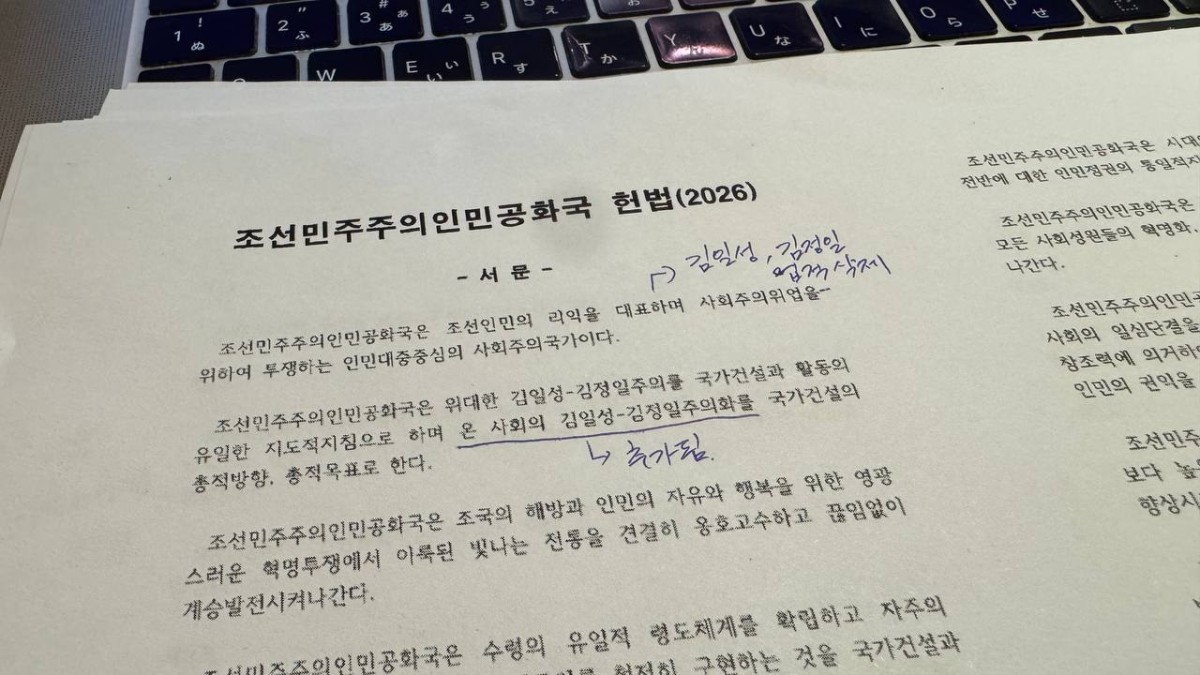 ! 1 ぬ
" 2 ふ
# 3 ぁ あ
4 ぅ う
5 え
I に
O ら
P せ
W
E ぃ い
R す
T か
Y
U な
조선민주주의인민공화국 헌법(2026)
- 서 문 -
↱ 김일성, 김정일
업적 삭제
조선민주주의인민공화국은 조선인민의 리익을 대표하며 사회주의위업을
위하여 투쟁하는 인민대중중심의 사회주의국가이다.
조선민주주의인민공화국은 위대한 김일성-김정일주의를 국가건설과 활동의
유일한 지도적지침으로 하며 온 사회의 김일성-김정일주의화를 국가건설의
총적방향, 총적목표로 한다.
↳ 추가됨.
조선민주주의인민공화국은 조국의 해방과 인민의 자유와 행복을 위한 영광
스러운 혁명투쟁에서 이룩된 빛나는 전통을 견결히 옹호고수하고 끊임없이
계승발전시켜나간다.
조선민주주의인민공화국은 수령의 유일적 령도체계를 확립하고 자주의
철저히 구현하는 것을 국가건설과
조선민주주의인민공화국은 시대
전반에 대한 인민정권의 통일적지
조선민주주의인민공화국은
모든 사회성원들의 혁명화,
나간다.
조선민주주의인민공
사회의 일심단결을
창조력에 의거하
인민의 권익을
조선민주
보다 높
향상시